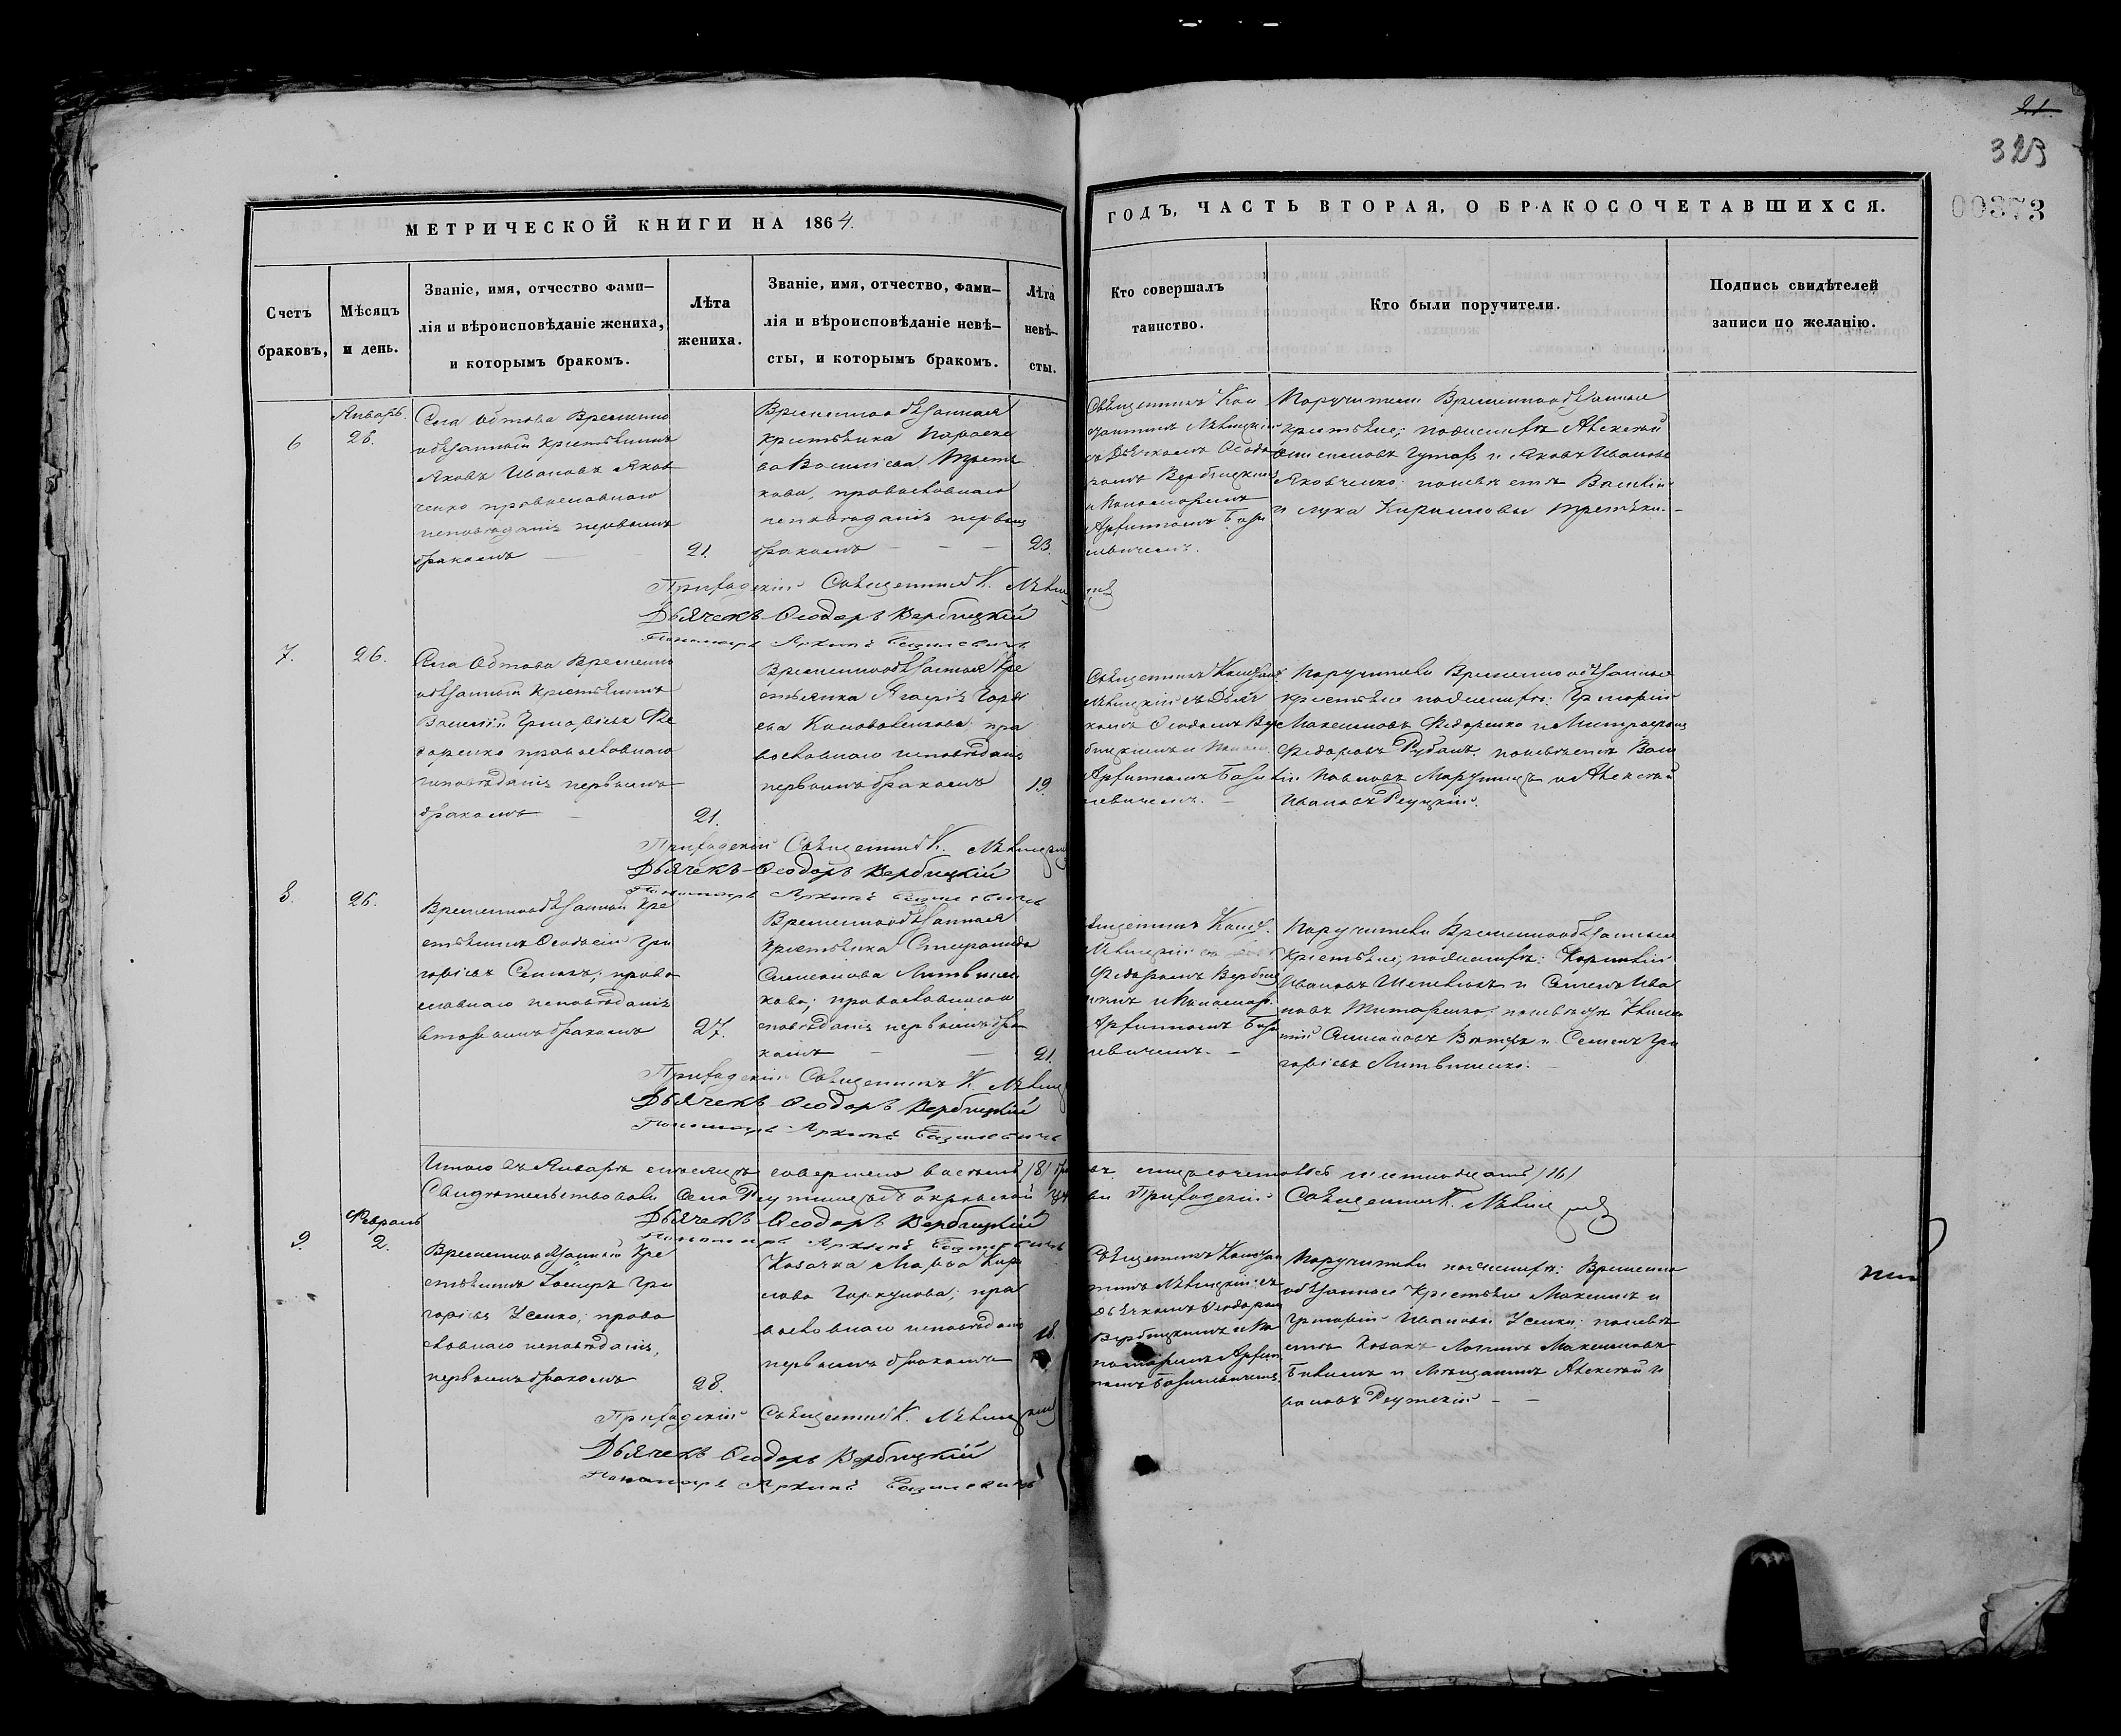 21.
323
00373
МЕТРИЧЕСКОЙ КНИГИ НА 1864.
ГОДЪ, ЧАСТЬ ВТОРАЯ, О БРАКОСОЧЕТАВШИХСЯ.
Счетъ браковъ,
Мѣсяцъ и день.
Званіе, имя, отчество фами-
лія и вѣроисповѣданіе жениха,
и которымъ бракомъ.
Лѣта жениха.
Званіе, имя, отчество, фами-
лія и вѣроисповѣданіе невѣ-
сты, и которымъ бракомъ.
Лѣта невѣ-
сты.
Кто совершалъ
таинство.
Кто были поручители.
Подпись свидѣтелей
записи по желанію.
6
Январь
26.
Села Обтова Временно
обязанный крестьянинъ
Яковъ Ивановъ Яков
ченко православнаго
исповѣданія первымъ
бракомъ
21.
Временнообязанная
крестьянка Параске
ва Василіева Треть
кова, православнаго
исповѣданія первымъ
бракомъ
23.
Священникъ Кон
стантинъ Лѣвицкій
съ Дьячкомъ Ѳеодо
ромъ Вербицкимъ
и Пономаремъ
Архипомъ Бази
левичемъ.
Поручители Временнообязанные
крестьяне; по женихѣ Алексѣй
и Яковъ Ивановъ
Яковченко; по невѣстѣ Василій
и Лука Кириловы Третьяки.
Приходскій Священникъ К. Лѣвицкій
Дьячекъ Ѳеодоръ Вербицкій
Пономарь Архипъ Базилевичъ
7.
26.
Села Обтова Временно
обязанный крестьянинъ
Василій Григоріевъ Фе
доренко православнаго
исповѣданія первымъ
бракомъ
21.
Временнообязанная кре
стьянка Агафія Горді
ева Коноваленкова пра
вославнаго исповѣданія
первымъ бракомъ
19.
Священникъ Констан.
Лѣвицкій съ Дьяч
комъ Ѳеодоромъ Вер
бицкимъ и Поном.
Архипомъ Бази
левичемъ.
Поручители Временнообязанные
крестьяне по женихѣ: Григорій
Максимовъ Федоренко и Митрофанъ
Федоровъ Рубанъ. по невѣстѣ Васи
лій Павловъ и Алексѣй
Ивановъ Реуцкій.
Приходскій Священникъ К. Лѣвицкій
Дьячекъ Ѳеодоръ Вербицкій
Пономарь Архипъ Базилевичъ
8.
26.
Временнообязанный кре
стьянинъ Ѳеодосій Гри
горіевъ право
славнаго исповѣданія
вторымъ бракомъ
27.
Временнообязанная
крестьянка Степанида
Симеонова Литвинен
кова; православнаго и
сповѣданія первымъ бра
комъ
21.
Священникъ Конст.
Лѣвицкій
Федоромъ Вербиц
кимъ и Пономар.
Архипомъ Бази
левичемъ.
Поручители Временнообязанные
крестьяне; по женихѣ: Корнилій
Ивановъ и Семенъ Ива
новъ Титаренко; по невѣстѣ
Симеоновъ и Семенъ Гри
горіевъ Литвиненко.
Приходскій Священникъ К. Лѣвицкій
Дьячекъ Ѳеодоръ Вербицкій
Пономарь Архипъ Базилевичъ
Итого въ Январѣ мѣсяцѣ совершено восемь /8/ бра
ковъ. лицъ сочеталось шестнадцать /16/
Свидѣтельствовали Села Реутинецъ Покровской Церк
ви Приходскій Священникъ К. Лѣвицкій
Дьячекъ Ѳеодоръ Вербицкій
Пономарь Архипъ Базилевичъ
9.
Февраль
2.
Временнообязанный кре
стьянинъ Іосифъ Гри
горіевъ Усенко; право
славнаго исповѣданія,
первымъ бракомъ
28.
Козачка Марфа Кири
лова Горкунова; пра
вославнаго исповѣданія
первымъ бракомъ
18.
Священникъ Констан
тинъ Лѣвицкій съ
Дьячкомъ Ѳеодоромъ
Вербицкимъ и По
номаремъ Архип
помъ Базилевичемъ
Поручители по женихѣ: Временно
обязанные крестьяне Максимъ и
Григорій Ивановы Усенки; по невѣ
стѣ Козакъ Логинъ Максимовъ
и Мѣщанинъ Алексѣй И
вановъ Реутскій
Приходскій Священникъ К. Лѣвицкій
Дьячекъ Ѳеодоръ Вербицкій
Пономарь Архипъ Базилевичъ